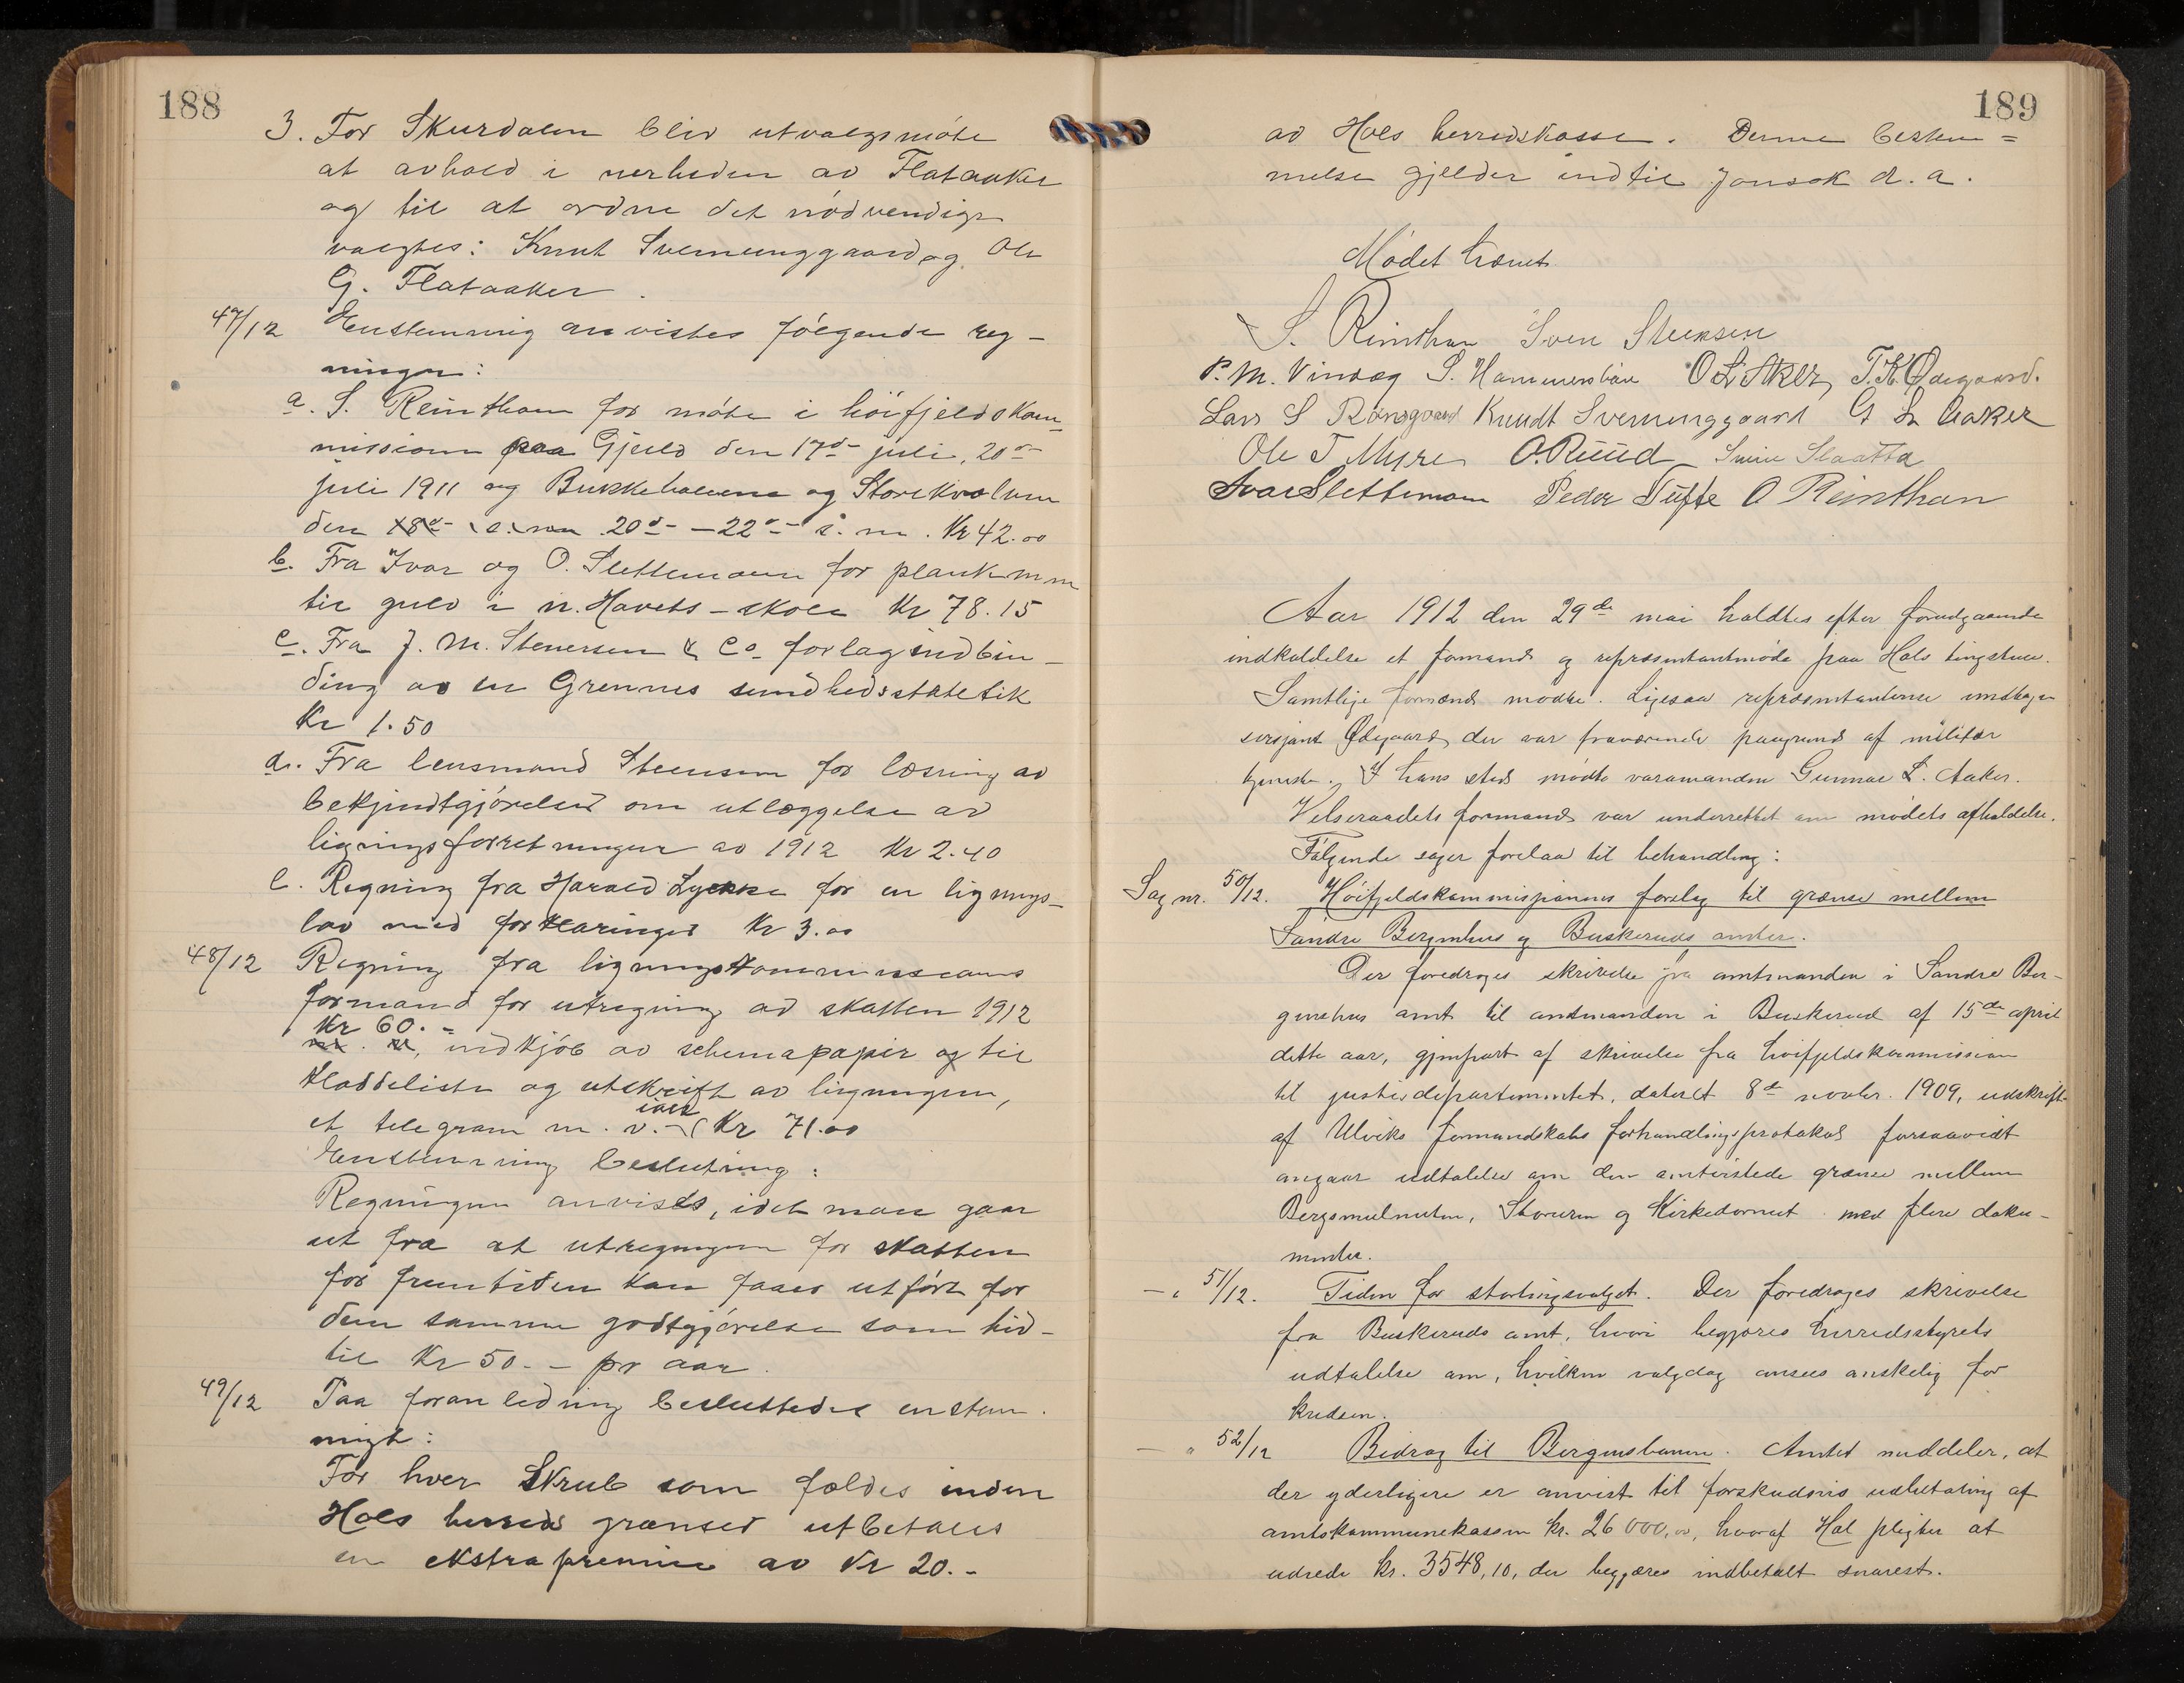 188
3. For Skurdalen bliv utvalgsmöte
at avhold i nerheden av Flataaker
og til at ordne det nödvendige
valgtes: Knut Sveinunggaard og Ole
G. Flataaker.
47/12 Enstemmig anvistes fölgende reg-
ninger:
a. S. Reinthan for möte i höifjeldskom-
missionen paa Gjeilo den 17de juli, 20de
juli 1911 og Bukkehalvene og Storekvolven
den 20d- — 22d- s. m. Kr 42.00
b. Fra Ivar og O. Slettemoen for plank m m
til gulv i n. Havets-skole Kr 78.15
c. Fra J. M. Stenersen & Co forlag indbin-
ding av en Grennes sundhedsstatetik
Kr 1.50
d. Fra lensmand Steensen for læsning av
bekjendtgjörelse om utlæggelse av
ligningsforretninger av 1912 Kr 2.40
e. Regning fra Harald Lykke for en lignings-
lov med forklaringer Kr 3.00
48/12 Regning fra ligningskommissions
formand for utregning av skatten 1912
Kr 60.-
indkjöb av schemapapir og til
kladdeliste og utskrift av ligningen,
ialt
et telegram m. v. Kr 71.00
Enstemmig beslutning:
Regningen anvises, idet man gaar
ut fra at utregningen for skatten
for fremtiden kan faaes utfört for
den samme godtgjörelse som hid-
til Kr 50.- pr aar.
49/12 Paa foranledning besluttedes enstem-
migt:
For hver Skrub som fældes inden
Hols herreds grænser utbetales
en ekstrapremie av Kr 20.-
189
av Hols herredskasse. Denne bestem=
melse gjelder indtil Jonsok d. a.
Mödet hævet
S. Reinthan Sven Steensen
P. M. Vindeg S. Hammersbøen O L Aker T. K. Ødegaard.
Lars S Rønsgaard Knudt Sveinunggaard G L Aaker
Ole T Myre O. Ruud Svein Slaatta
Ivar Slettemoen Peder Tufte O Reinthan
Aar 1912 den 29de mai holdtes efter forudgaaende
indkaldelse et formands og repræsentantmöde paa Hols tingstue.
Samtlige formænd mödte. Ligesaa repræsentanterne undtagen
sersjant Ødegaard, der var fraværende paagrund af militær
tjeneste. I hans sted mödte varamanden Gunnar L. Aaker.
Velseraadets formand var underrettet om mödets afholdelse.
Fölgende sager forelaa til behandling:
Sag nr. 50/12. Höifjeldskommissionens forslag til grænse mellem
Söndre Bergenhus og Buskeruds amter.
Der foredroges skrivelse fra amtmanden i Söndre Ber-
genhus amt til amtmanden i Buskerud af 15de april
dette aar, gjenpart af skrivelse fra höifjeldskommission
til justisdepartementet, dateret 8de novbr. 1909, udskrift
af Ulviks formandskabs forhandlingsprotokol forsaavidt
angaar udtalelse om den omtvistede grænse mellem
Bergsmulnuten, Storuren og Kirkedörnut med flere doku-
menter.
— " 51/12. Tiden for stortingsvalget. Der foredroges skrivelse
fra Buskeruds amt, hvori begjæres herredsstyrets
udtalelse om, hvilken valgdag ansees önskelig for
kredsen.
— " 52/12 Bidrag til Bergensbanen. Amtet meddeler, at
der yderligere er anvist til forskudsvis udbetaling af
amtskommunekassen kr. 26 000,00, hvoraf Hol pligter at
udrede kr. 3548,10, der begjæres indbetalt snarest.